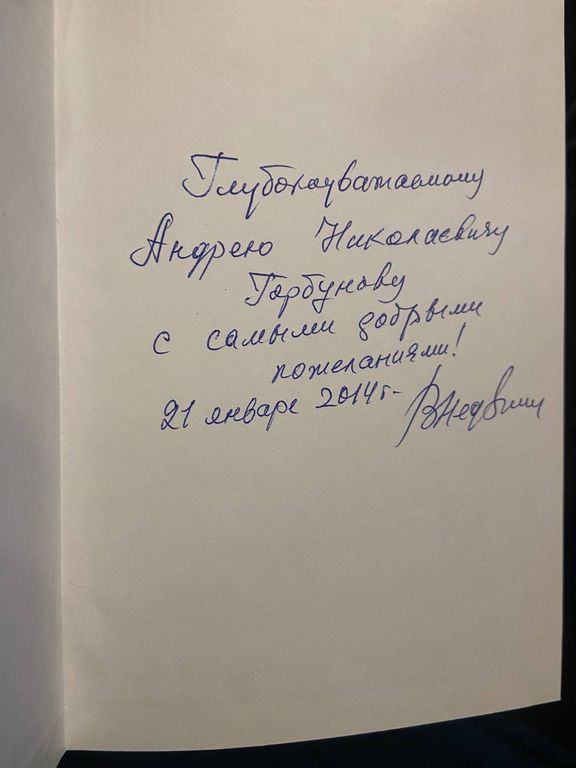 Глубокоуважаемому
Андрею Николаевичу
Горбунову
с самыми добрыми
пожеланиями!
21 января 2014г.